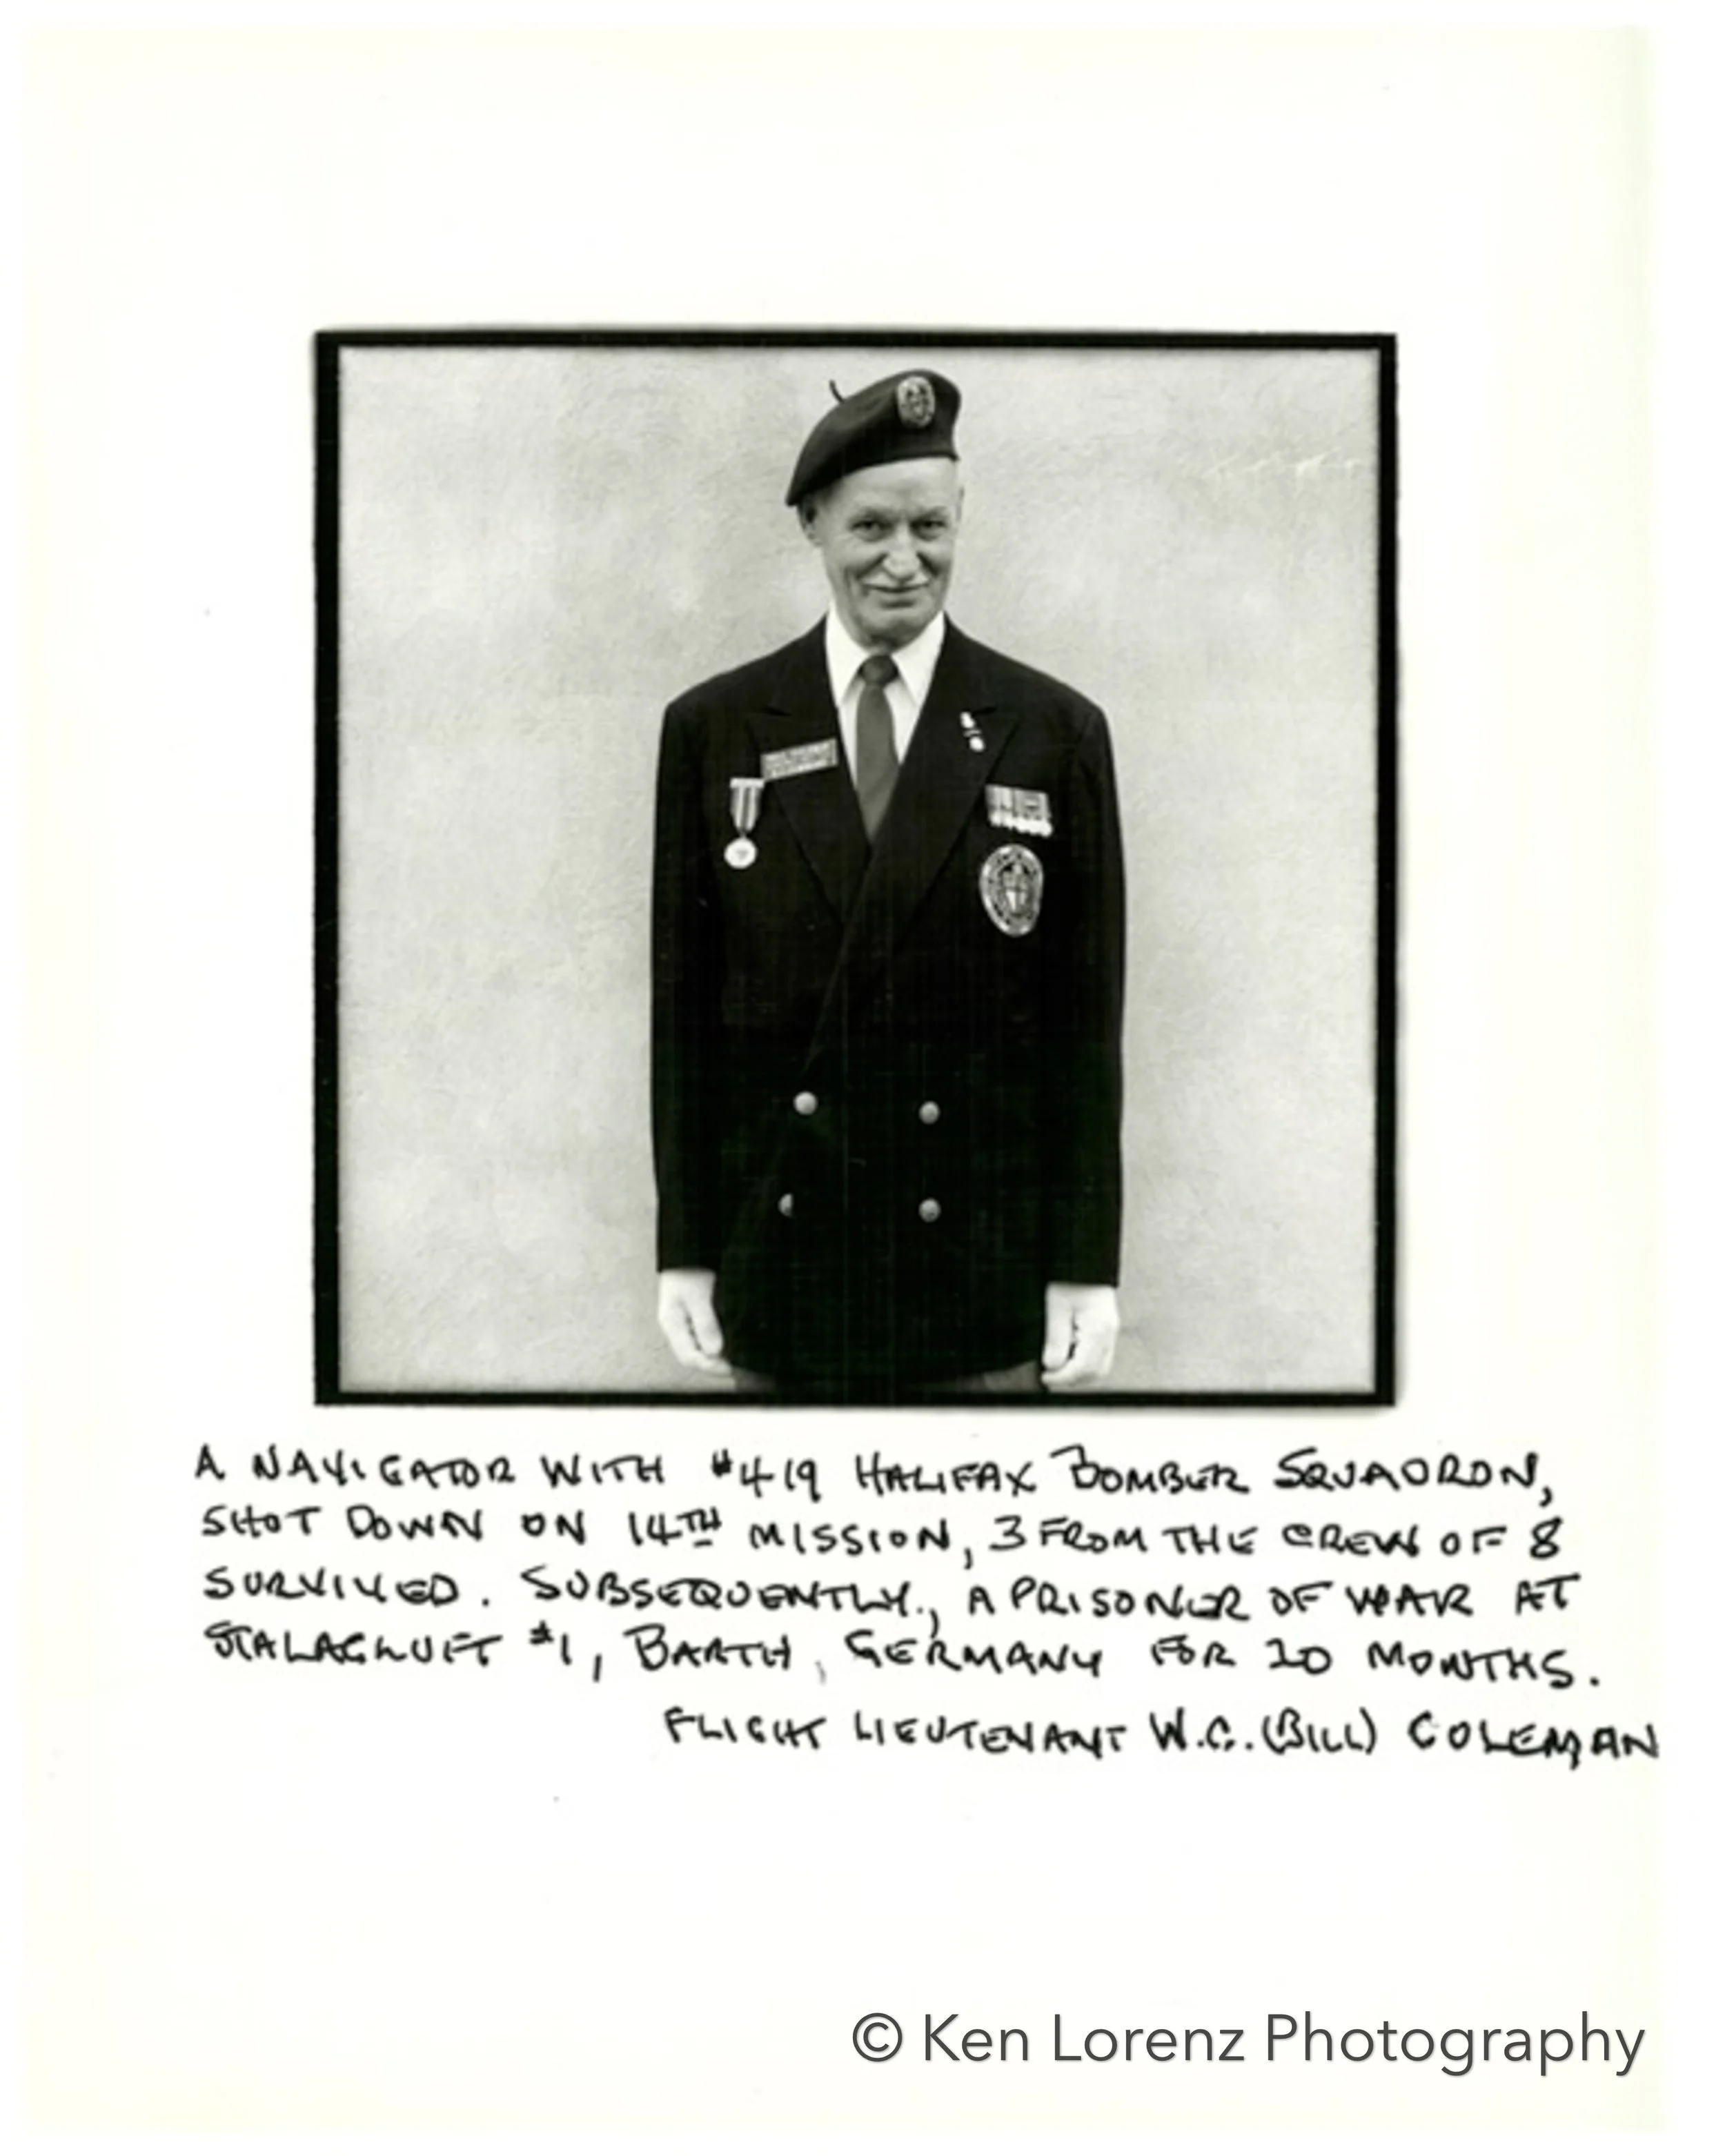 A NAVIGATOR WITH #419 HALIFAX BOMBER SQUADRON,
SHOT DOWN ON 14TH MISSION, 3 FROM THE CREW OF 8
SURVIVED. SUBSEQUENTLY, A PRISONER OF WAR AT
STALAGLUFT #1, BARTH, GERMANY FOR 20 MONTHS.
FLIGHT LIEUTENANT W.C. (BILL) COLEMAN
© Ken Lorenz Photography